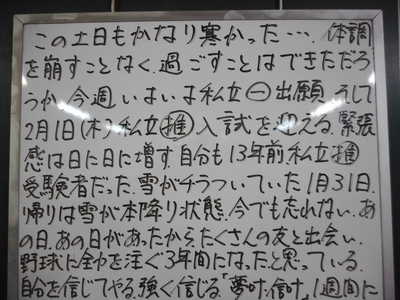 この土日もかなり寒かった…。体調
を崩すことなく、過ごすことはできただろ
うか。今週、いよいよ私立㊀出願、そして
2月1日(木)私立㊡入試を迎える。緊張
感は日に日に増す。自分も13年前私立㊡
受験者だった。雪がチラついていた1月31日。
帰りは雪が本降り状態。今でも忘れない。あ
の日。あの日があったから、たくさんの友と出会い、
野球に全力を注ぐ3年間になったと思っている。
自分を信じてやる。強く信じる。「夢叶、信叶」1週間に